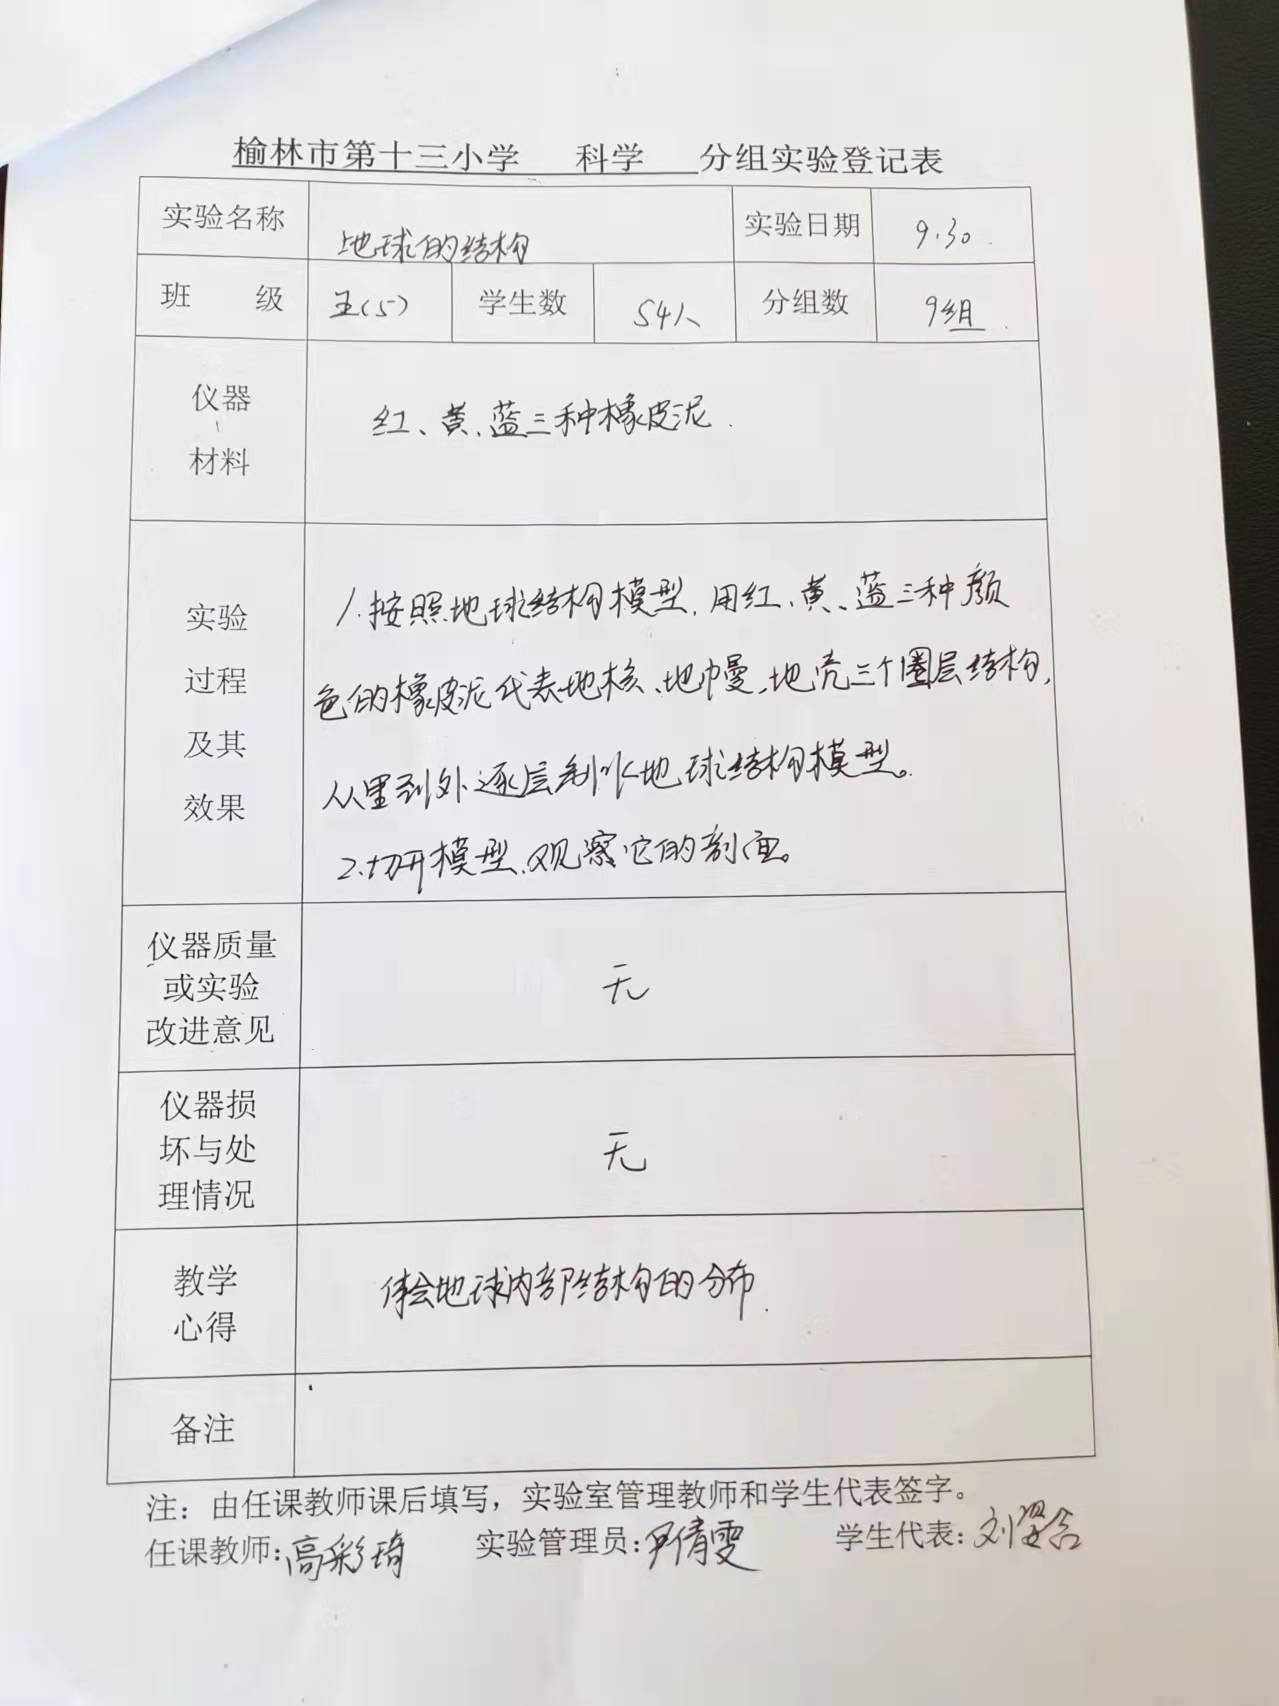 榆林市第十三小学 科学 分组实验登记表
实验名称 地球的结构 实验日期 9.30
班 级 五(5) 学生数 54人 分组数 9组
仪器
材料
红、黄、蓝三种橡皮泥.
实验
过程
及其
效果
1.按照地球结构模型,用红、黄、蓝三种颜
色的橡皮泥代表地核、地幔、地壳三个圈层结构,
从里到外逐层制作地球结构模型。
2.切开模型,观察它的剖面。
仪器质量
或实验
改进意见
无
仪器损
坏与处
理情况
无
教学
心得
体会地球内部结构的分布.
备注
注：由任课教师课后填写，实验室管理教师和学生代表签字。
任课教师:高彩琦 实验管理员:尹倩雯 学生代表:刘